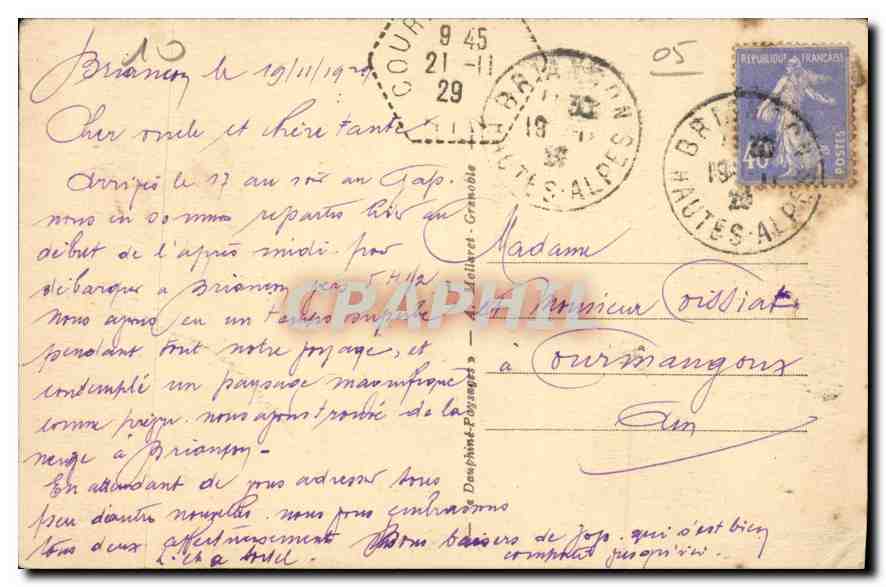 10
05
Briançon le 19/11/1929
Cher oncle et chère Tante
Arrivés le 17 au soir au Gap.
nous en sommes repartis hier au
début de l'après midi pour
débarquer à Briançon vers 5 h 1/2
Nous avons eu un temps superbe
pendant tout notre voyage, et
contemplé un paysage magnifique
comme prévu. nous avons trouvé de la
neige à Briançon -
En attendant de vous adresser sous
peu d'autres nouvelles nous vous embrassons
tous deux affectueusement
Bons baisers de qui s'est bien
comporté jusqu'ici.
Madame
et Monsieur Poissiat
à Courmangoux
Ain
« Dauphiné-Paysages » — Mollaret - Grenoble
COUR
9 45
21 -11
29
BRIANÇON
HAUTES-ALPES
RÉPUBLIQUE FRANÇAISE
40
POSTES
BRIANÇON
HAUTES-ALPES
CPAPHIL